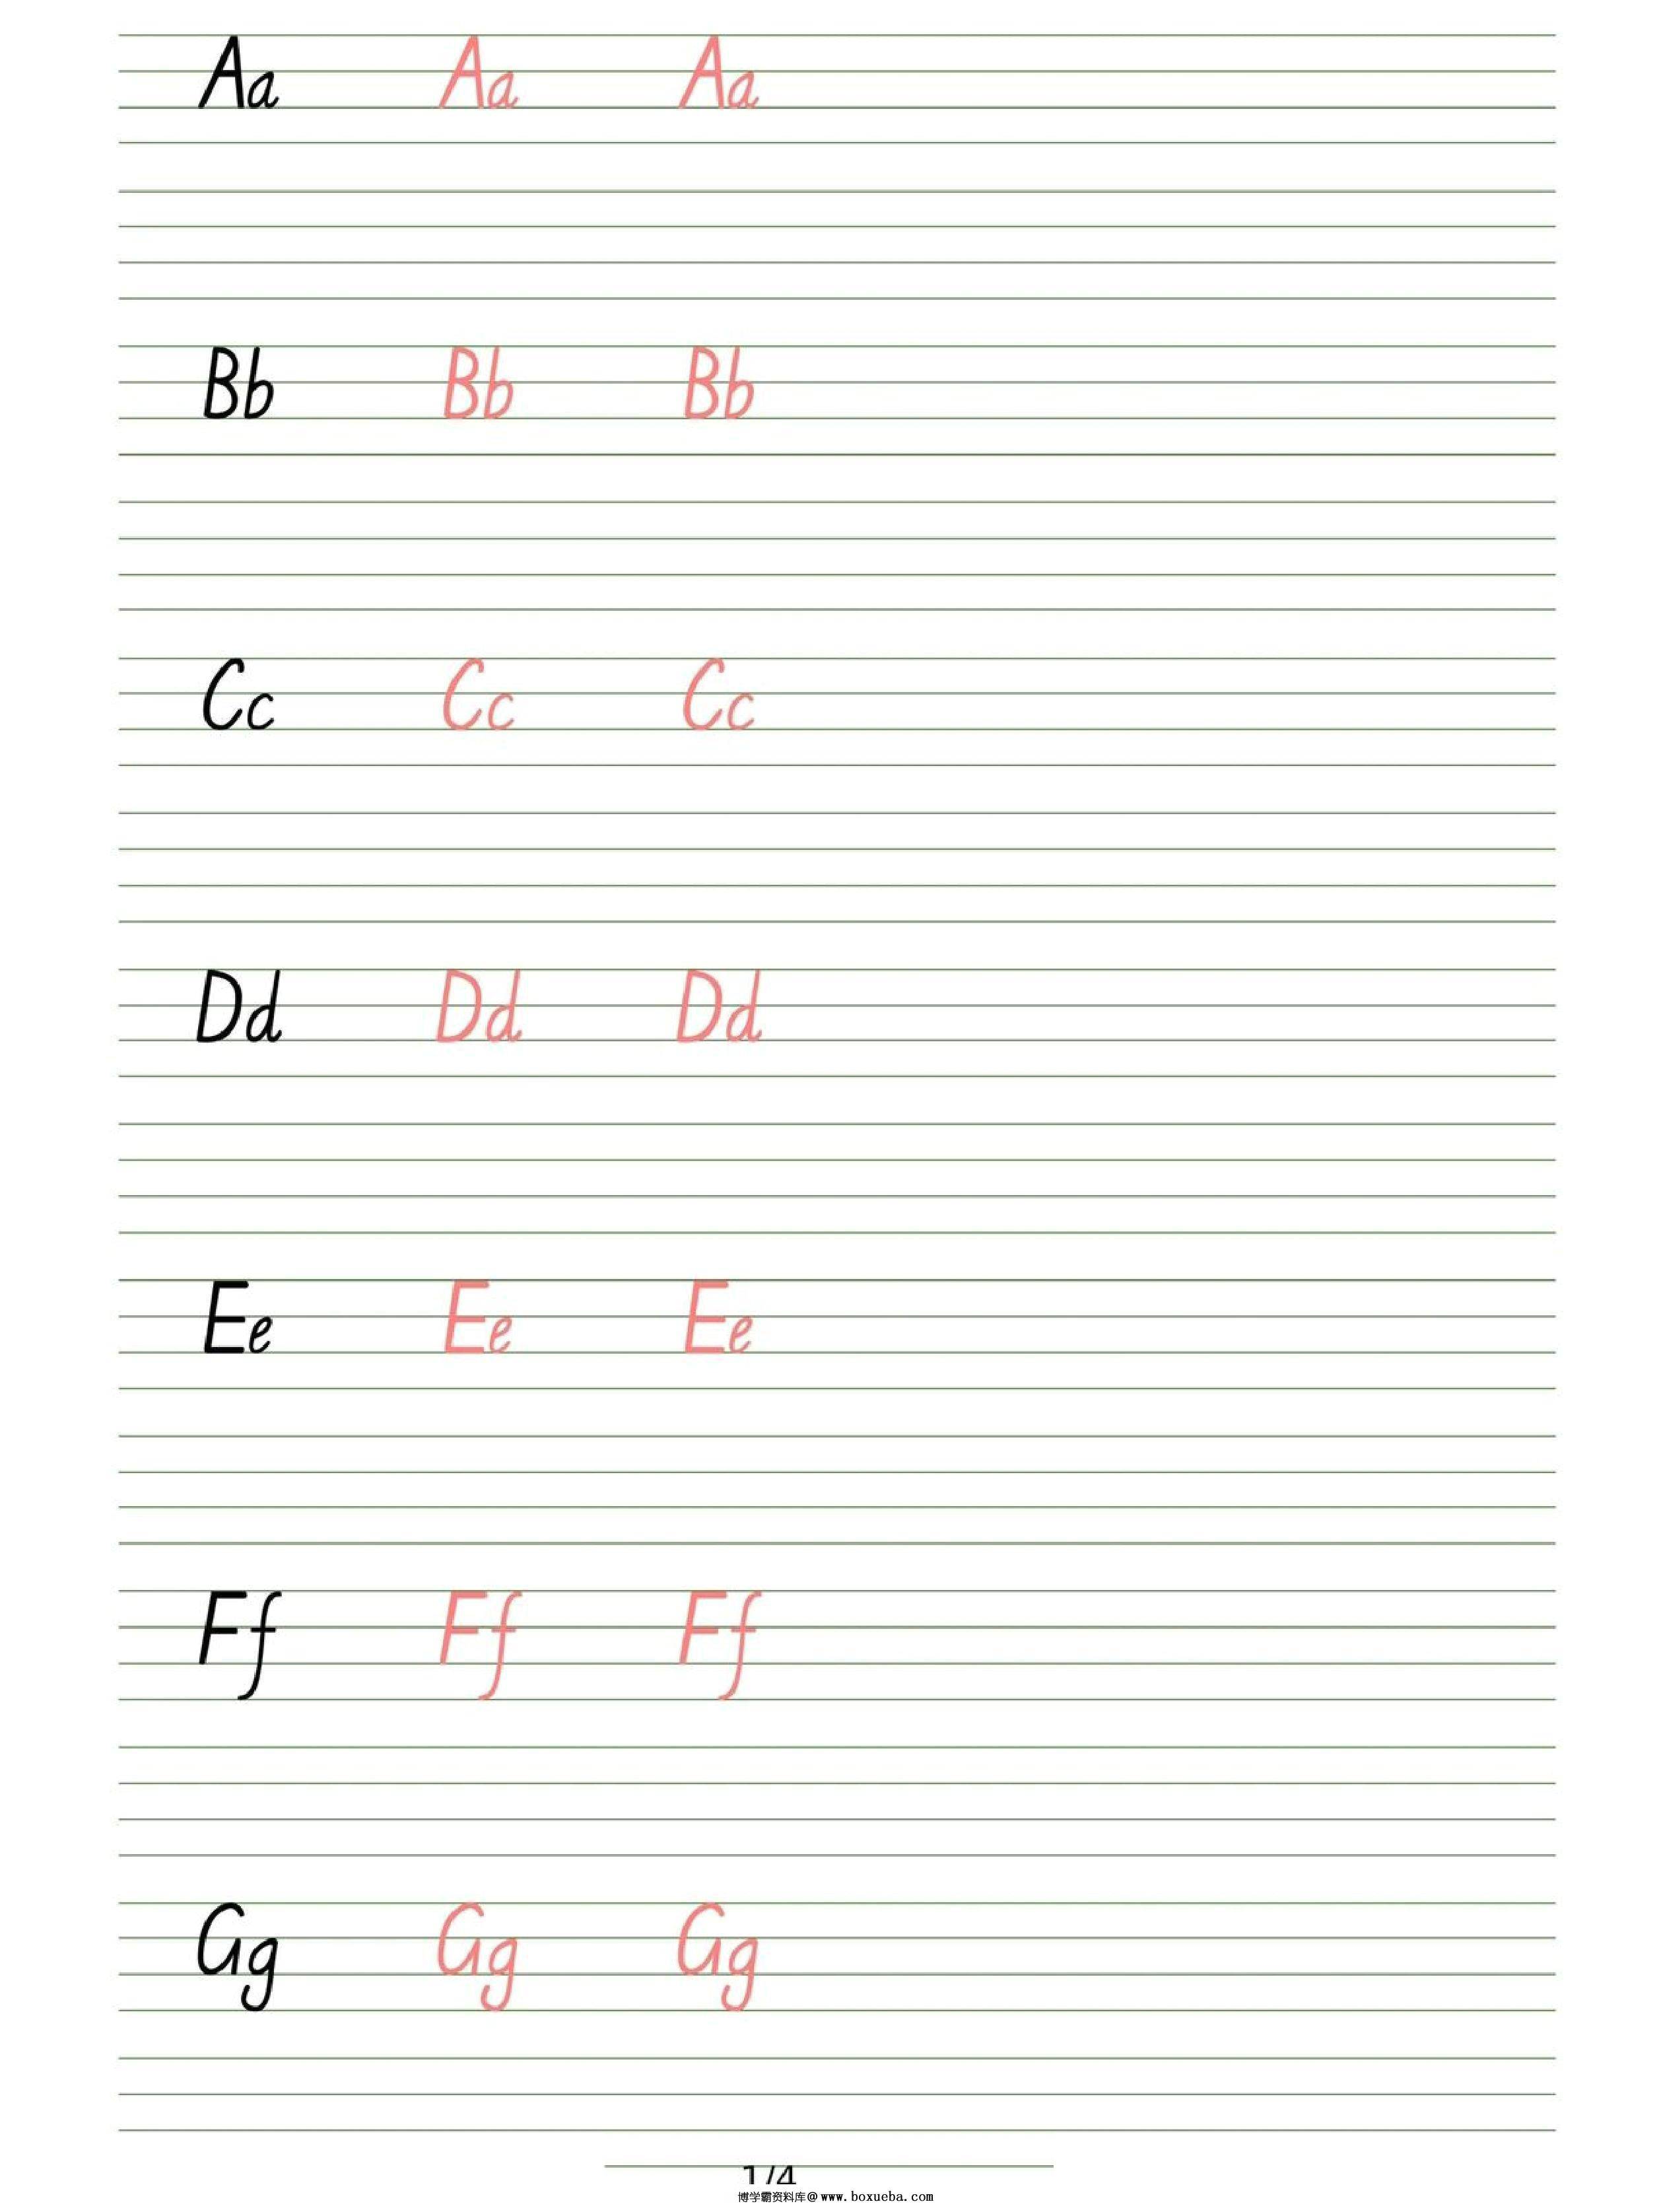 Aa Aa Aa
Bb Bb Bb
Cc Cc Cc
Dd Dd Dd
Ee Ee Ee
Ff Ff Ff
Gg Gg Gg
1/4
博学霸资料库@www.boxueba.com